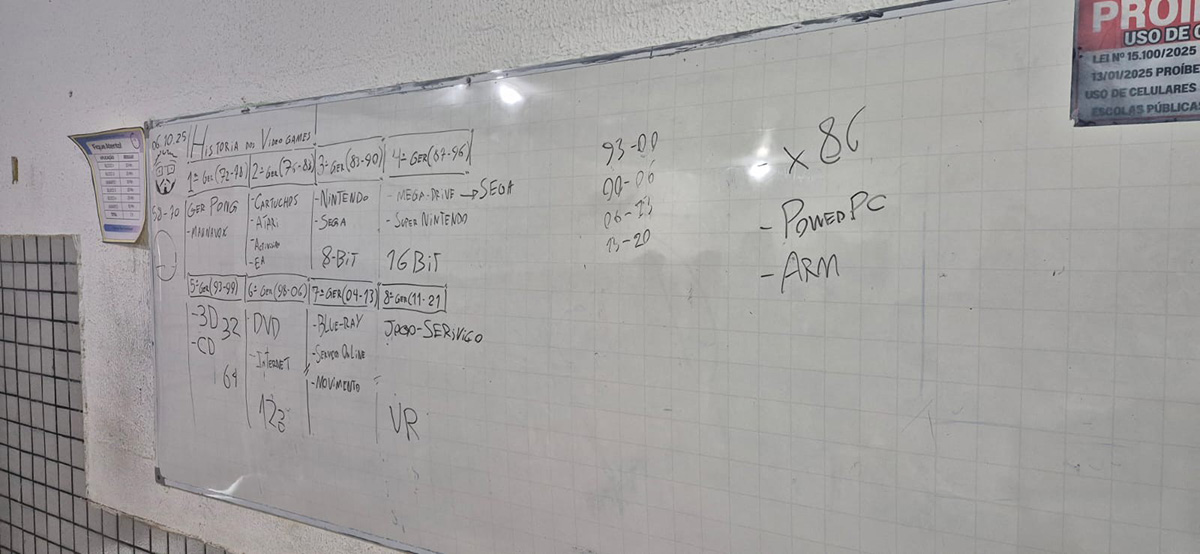 06.10.25
HISTORIA DOS VIDEO GAMES
1ª GER(72-78)
2ª GER(76-88)
3ª GER(83-90)
4ª GER(87-96)
58-70
GER PONG
- MAGNAVOX
- CARTUCHOS
- ATARI
- EA
- NINTENDO
- SEGA
8-BIT
- MEGA-DRIVE → SEGA
- SUPER NINTENDO
16 BiT
5ª GER(93-99)
6ª GER(98-06)
7ª GER(04-13)
8ª GER(11-21)
- 3D 32
- CD
64
DVD
- INTERNET
128
- BLUE-RAY
- SERVIÇO ONLINE
- MOVIMENTO
JOGO-SERVIÇO
VR
93-00
00-06
06-13
13-20
- x86
- POWERPC
- ARM
PROI
USO DE C
LEI Nº 15.100/2025
13/01/2025 PROÍBE
USO DE CELULARES
ESCOLAS PÚBLICA